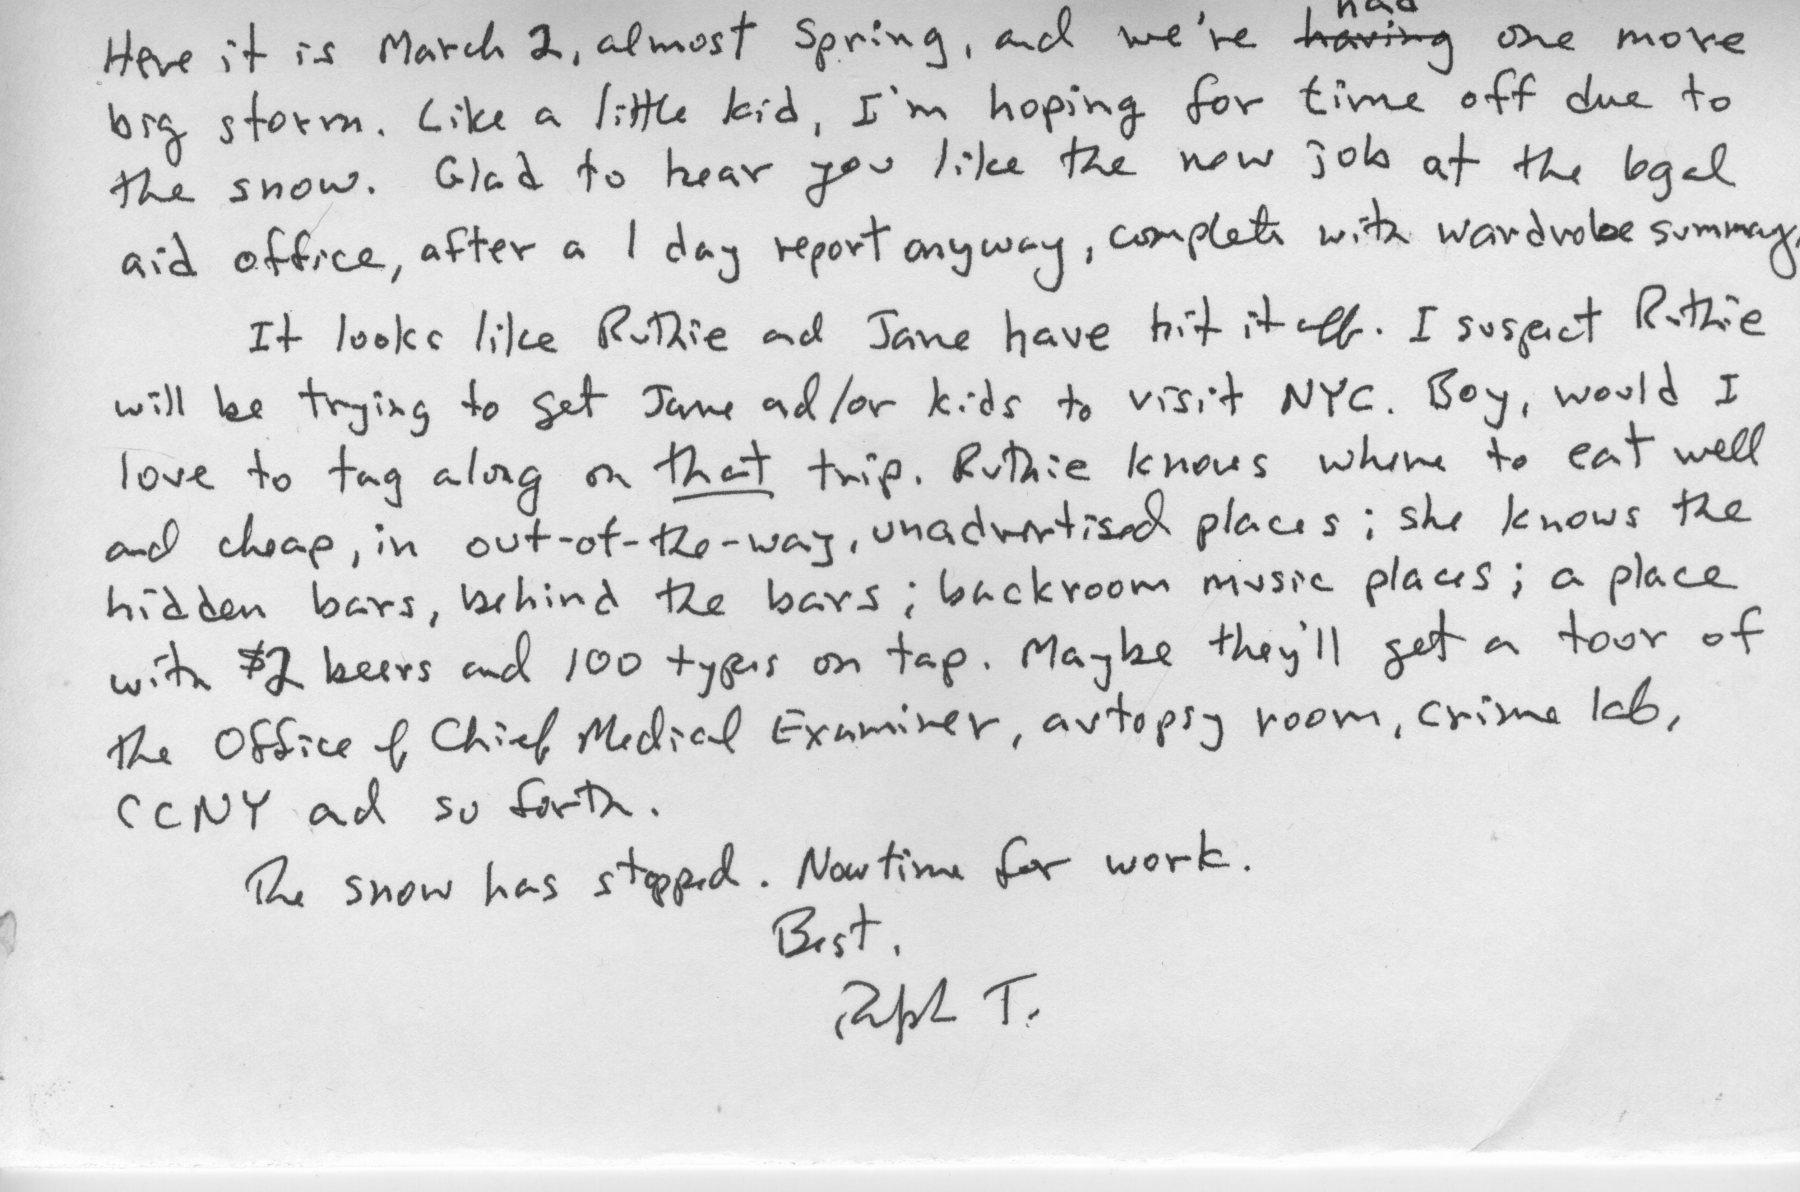 Here it is March 2, almost Spring, and we're ~~having~~ had one more
big storm. Like a little kid, I'm hoping for time off due to
the snow. Glad to hear you like the new job at the legal
aid office, after a 1 day report anyway, complete with wardrobe summary.
It looks like Ruthie and Jane have hit it off. I suspect Ruthie
will be trying to get Jane and/or kids to visit NYC. Boy, would I
love to tag along on that trip. Ruthie knows where to eat well
and cheap, in out-of-the-way, unadvertised places; she knows the
hidden bars, behind the bars; backroom music places; a place
with $2 beers and 100 types on tap. Maybe they'll get a tour of
the Office of Chief Medical Examiner, autopsy room, crime lab,
CCNY and so forth.
The snow has stopped. Now time for work.
Best,
Ralph T.